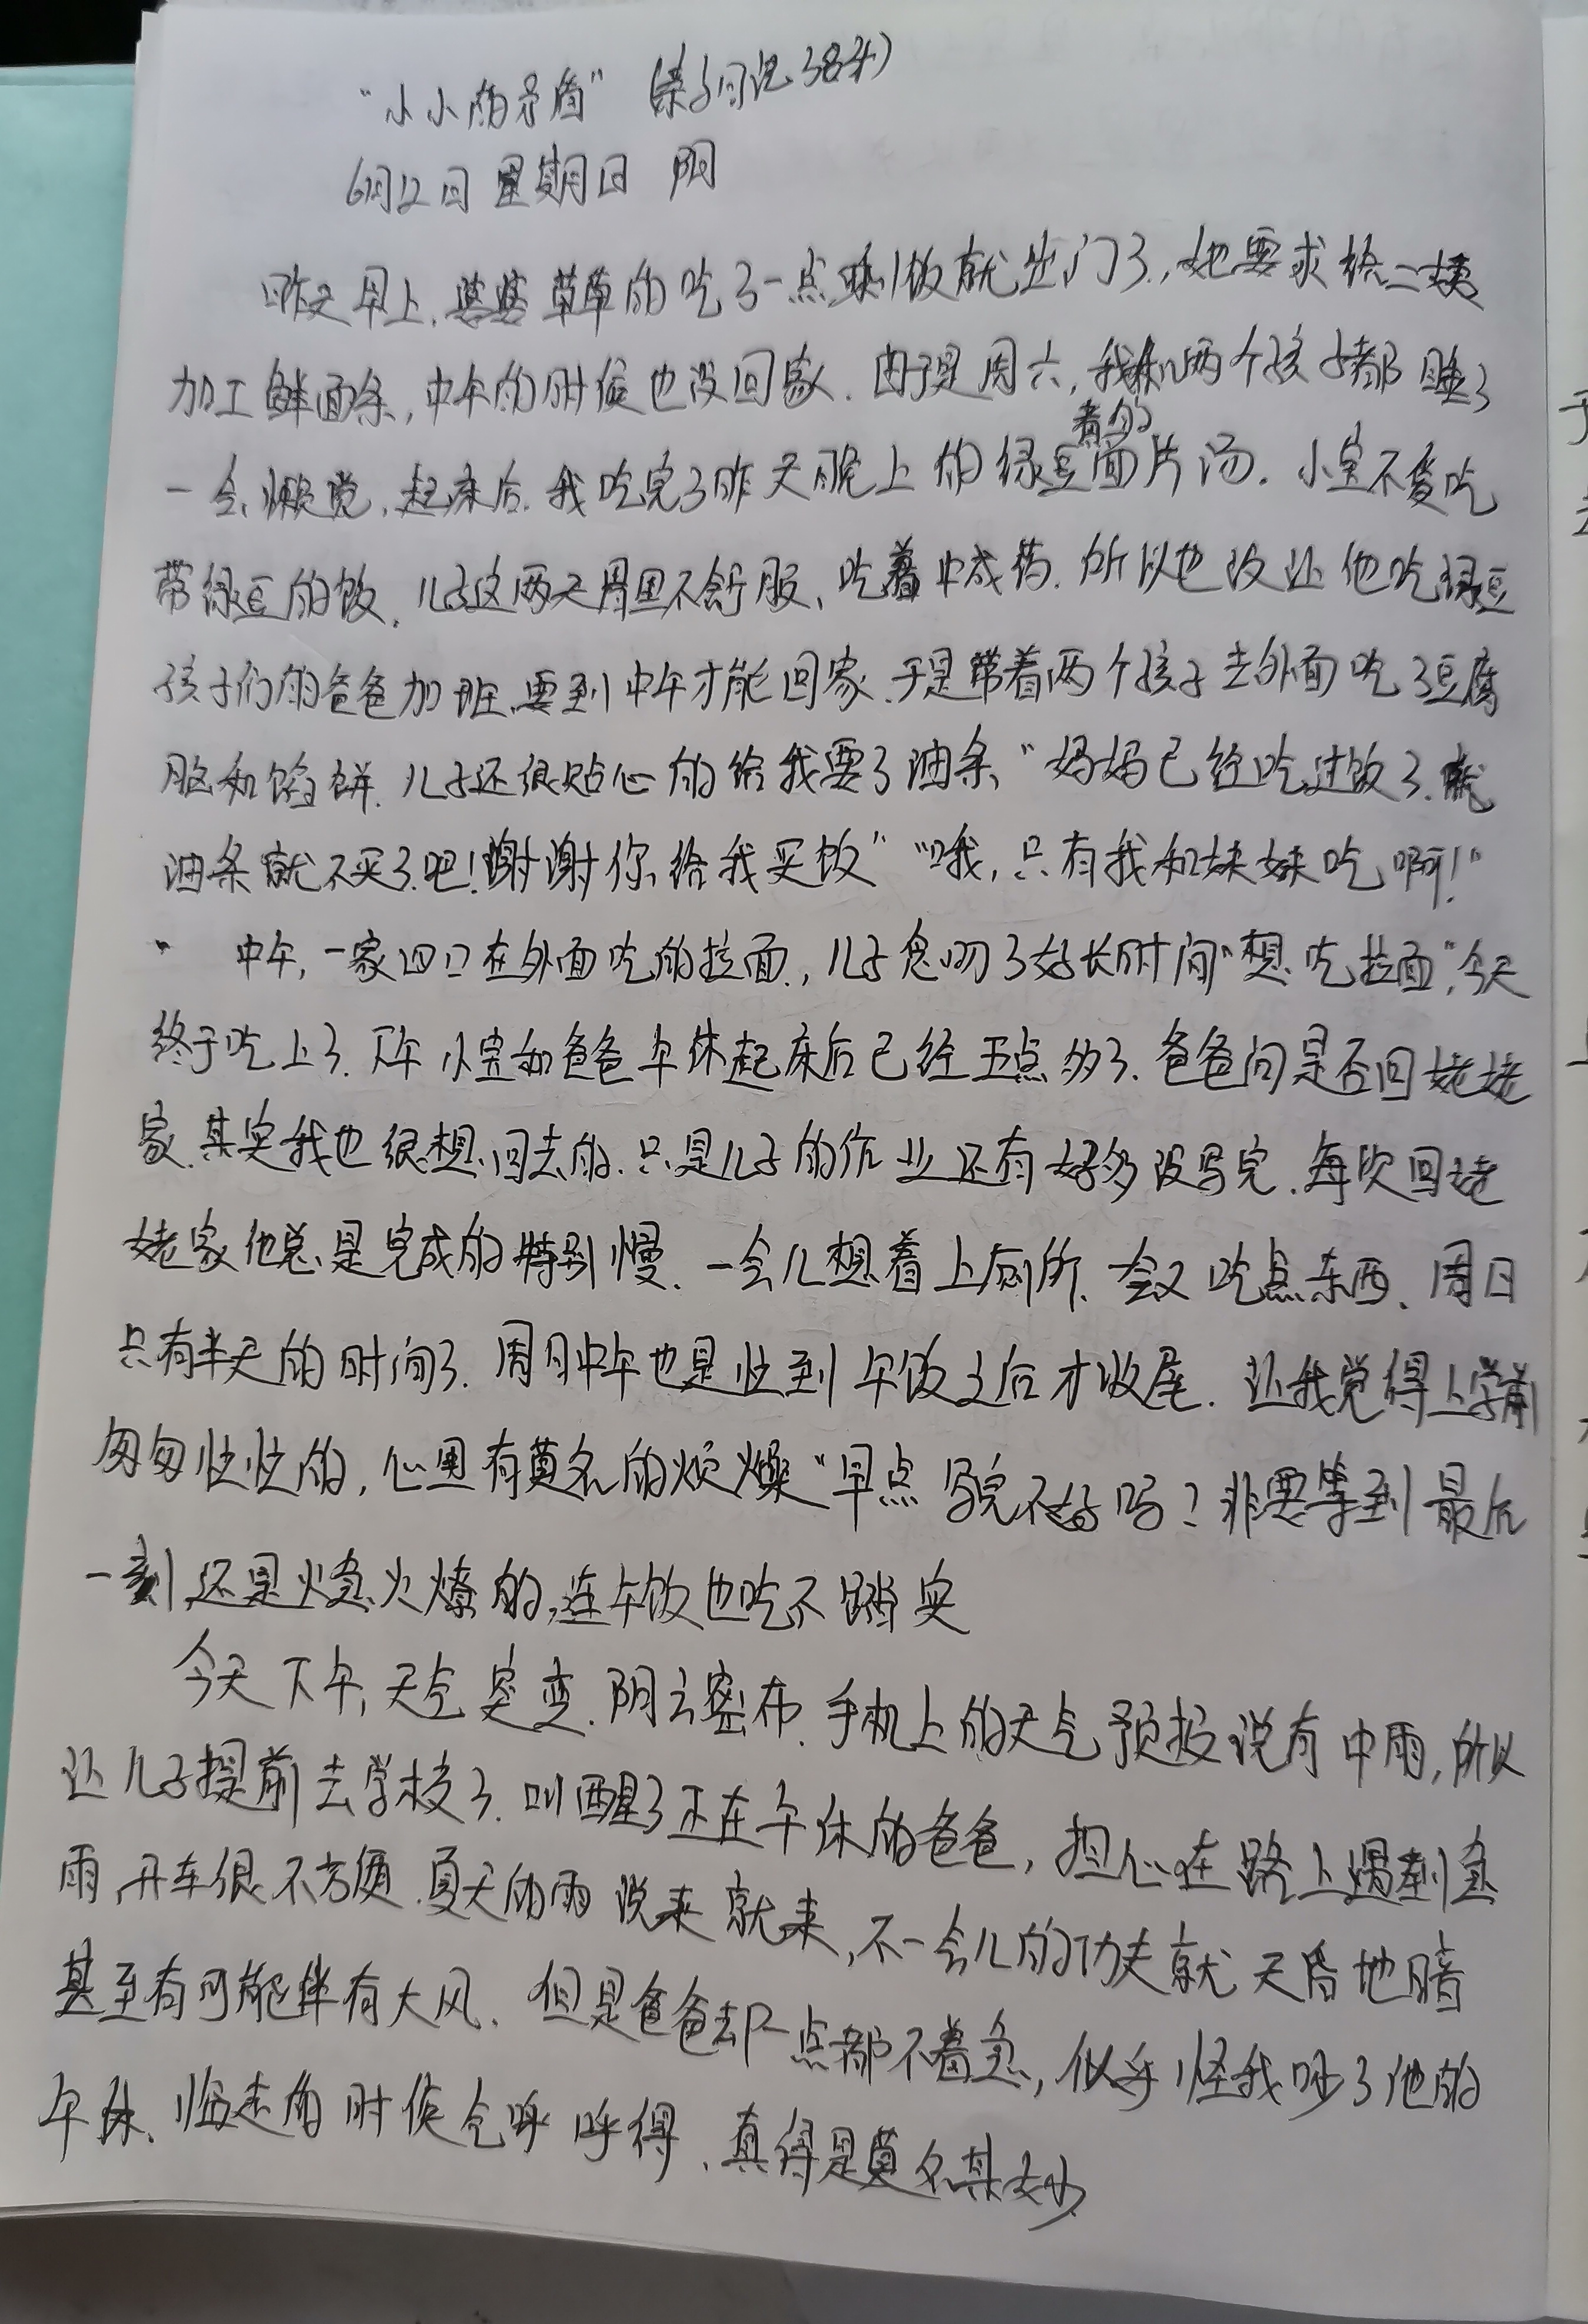 “小小的矛盾”（亲子日记384）
6月12日 星期日 阴
昨天早上，婆婆草草的吃了一点剩饭就出门了，她要求给二姨
加工鲜面条，中午的时候也没回家．由于是周六，我和两个孩子都睡了
一会懒觉，起床后，我吃完了昨天晚上的绿豆煮的面片汤．小宝不爱吃
带绿豆的饭，儿子这两天胃里不舒服、吃着中成药．所以也没让他吃绿豆
孩子们的爸爸加班，要到中午才能回家．于是带着两个孩子去外面吃了豆腐
脑和馅饼．儿子还很贴心的给我要了油条、“妈妈已经吃过饭了．
油条就不买了吧！谢谢你给我买饭”“哦，只有我和妹妹吃啊！”
中午，一家四口在外面吃的拉面，儿子念叨了好长时间“想吃拉面”，今天
终于吃上了．下午小宝和爸爸午休起床后已经五点多了．爸爸问是否回姥姥
家．其实我也很想回去的．只是儿子的作业还有好多没写完．每次回姥
姥家他总是完成的特别慢．一会儿想着上厕所、会又吃点东西、周日
只有半天的时间了．周日中午也是忙到午饭之后才收尾．让我觉得上学前
匆匆忙忙的，心里有莫名的烦燥“早点写完不好吗？非要等到最后
一刻，还是火急火燎的，连午饭也吃不踏实
今天下午，天气突变．阴云密布．手机上的天气预报说有中雨，所以
让儿子提前去学校了．叫醒了正在午休的爸爸，担心在路上遇到急
雨，开车很不方便．夏天的雨说来就来，不一会儿的功夫就天昏地暗
甚至有可能伴有大风．但是爸爸却一点都不着急，似乎怪我吵了他的
午休、临走的时候气呼呼得、真得是莫名其妙